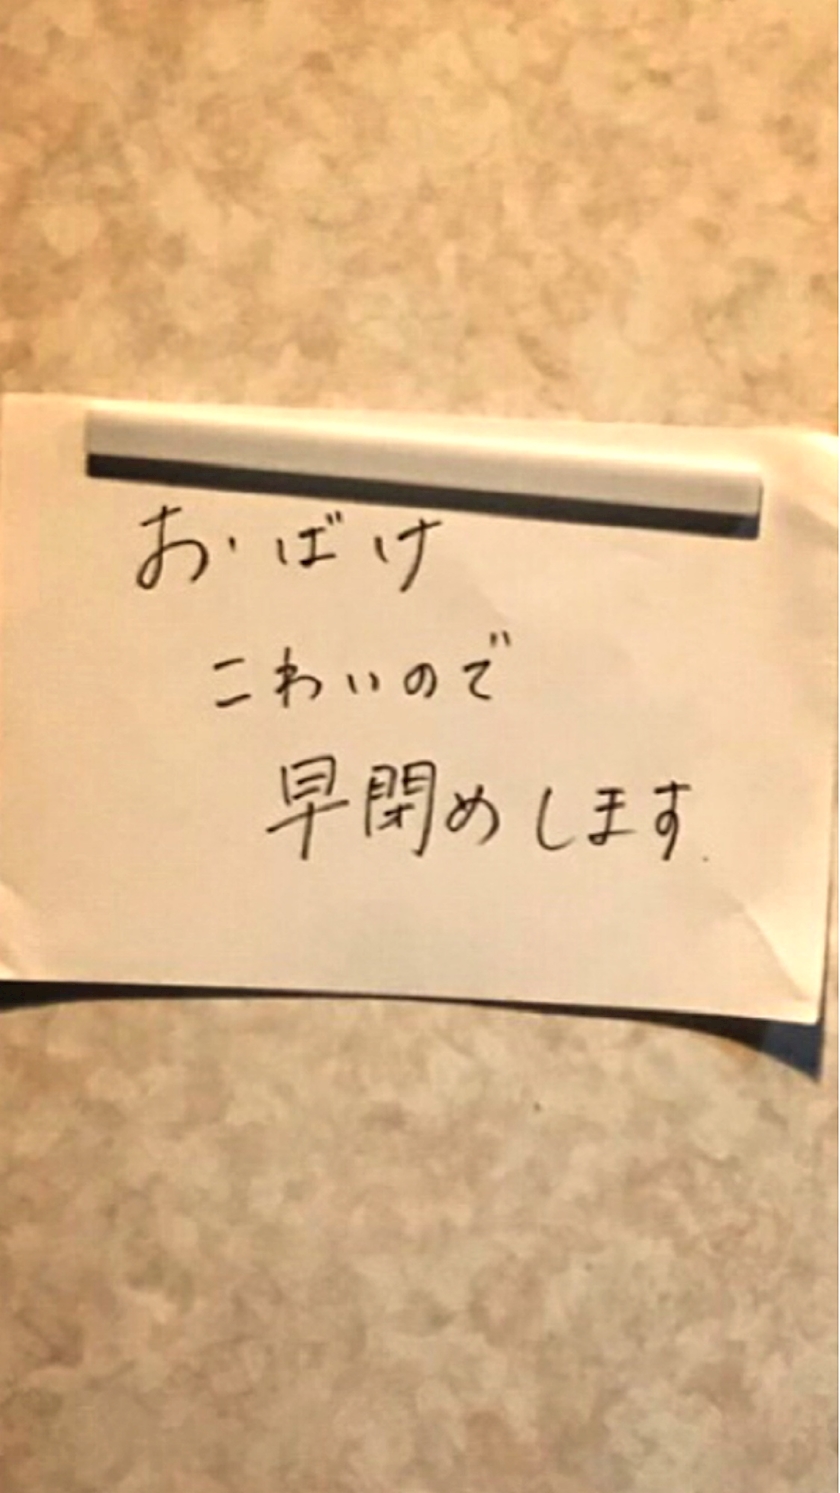 おばけ
こわいので
早閉めします.